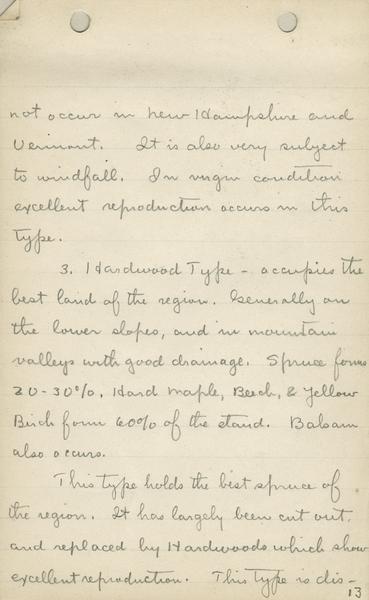 not occur in New Hampshire and
Vermont. It is also very subject
to windfall. In virgin condition
excellent reproduction occurs in this
type.
3. Hardwood Type - occupies the
best land of the region. Generally on
the lower slopes, and in mountain
valleys with good drainage. Spruce forms
20-30%, Hard Maple, Beech, & Yellow
Birch form 60% of the stand. Balsam
also occurs.
This type holds the best spruce of
the region. It has largely been cut out,
and replaced by Hardwoods which show
excellent reproduction. This type is dis-
13